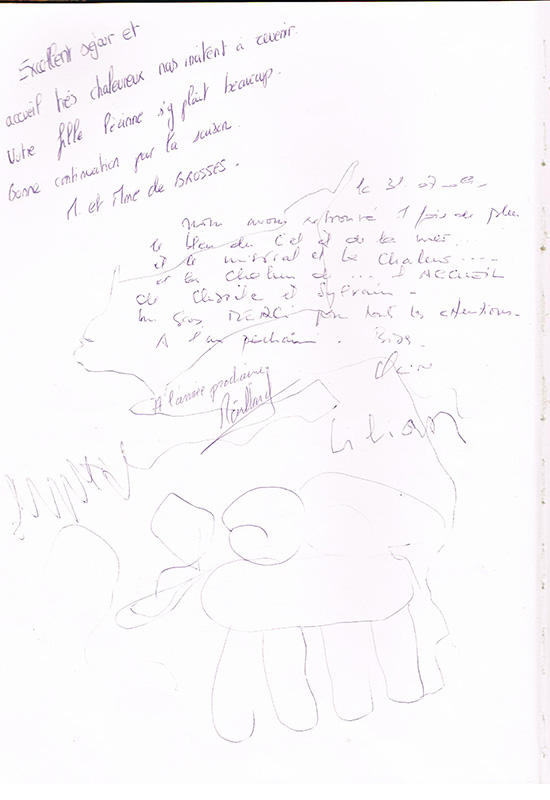 Excellent séjour et
accueil très chaleureux nous invitent à revenir.
Votre fille s'y plait beaucoup.
Bonne continuation pour la saison.
M. et Mme de BROSSES.
le 31 07
avons retrouvé 1 fois de plus
le bleu du Ciel et de la mer...
et le mistral et la Chaleur....
et la chaleur de ... l'ACCUEIL
de et Sylvain -
Un gros MERCI pour tout les attentions.
A l'an prochain. Bises
A l'année prochaine
Lilian